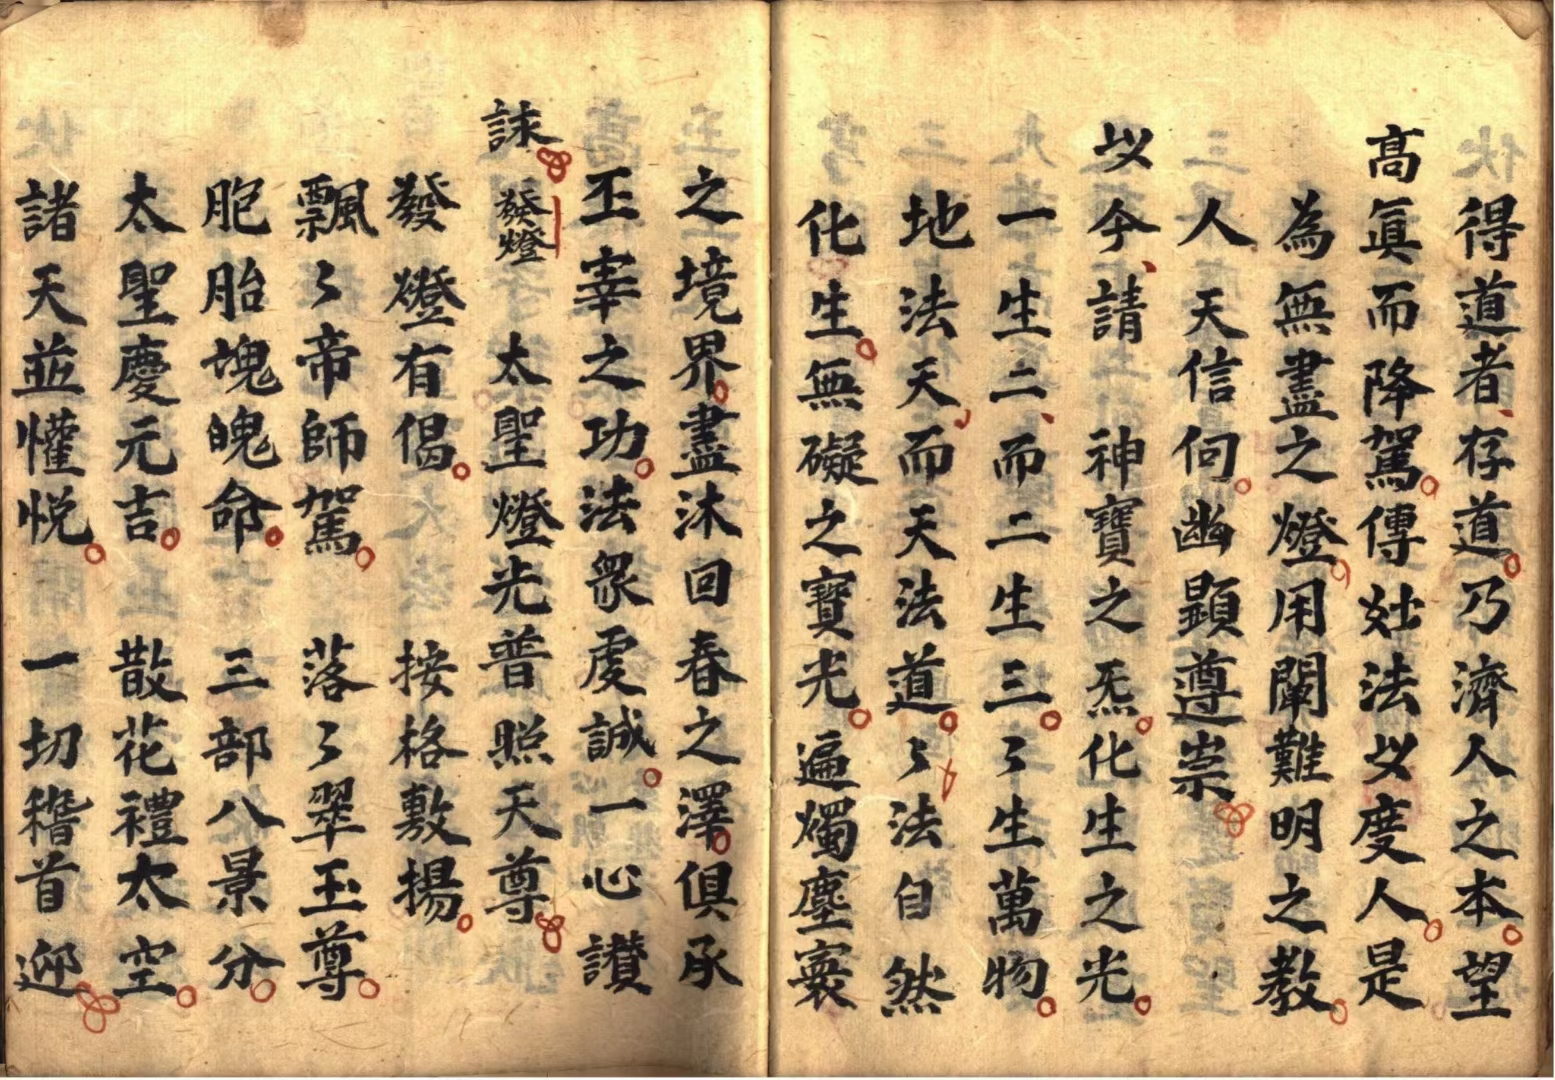 得道者存道乃濟人之本望
高眞而降駕傳妙法以度人是
為無盡之燈用闡難明之教
人天信向幽顯尊崇
以今請神寶之炁化生之光
一生二而二生三〻生萬物
地法天而天法道〻法自然
化生無礙之寶光遍燭塵寰
之境界盡沐回春之澤俱承
丕宰之功法衆虔誠一心讃
詠 發燈 太聖燈光普照天尊
發燈有偈 按格敷揚
飄〻帝師駕 落〻翠玉尊
胞胎塊魄命 三部八景分
太聖慶元吉 散花禮太空
諸天並懽悅 一切稽首迎